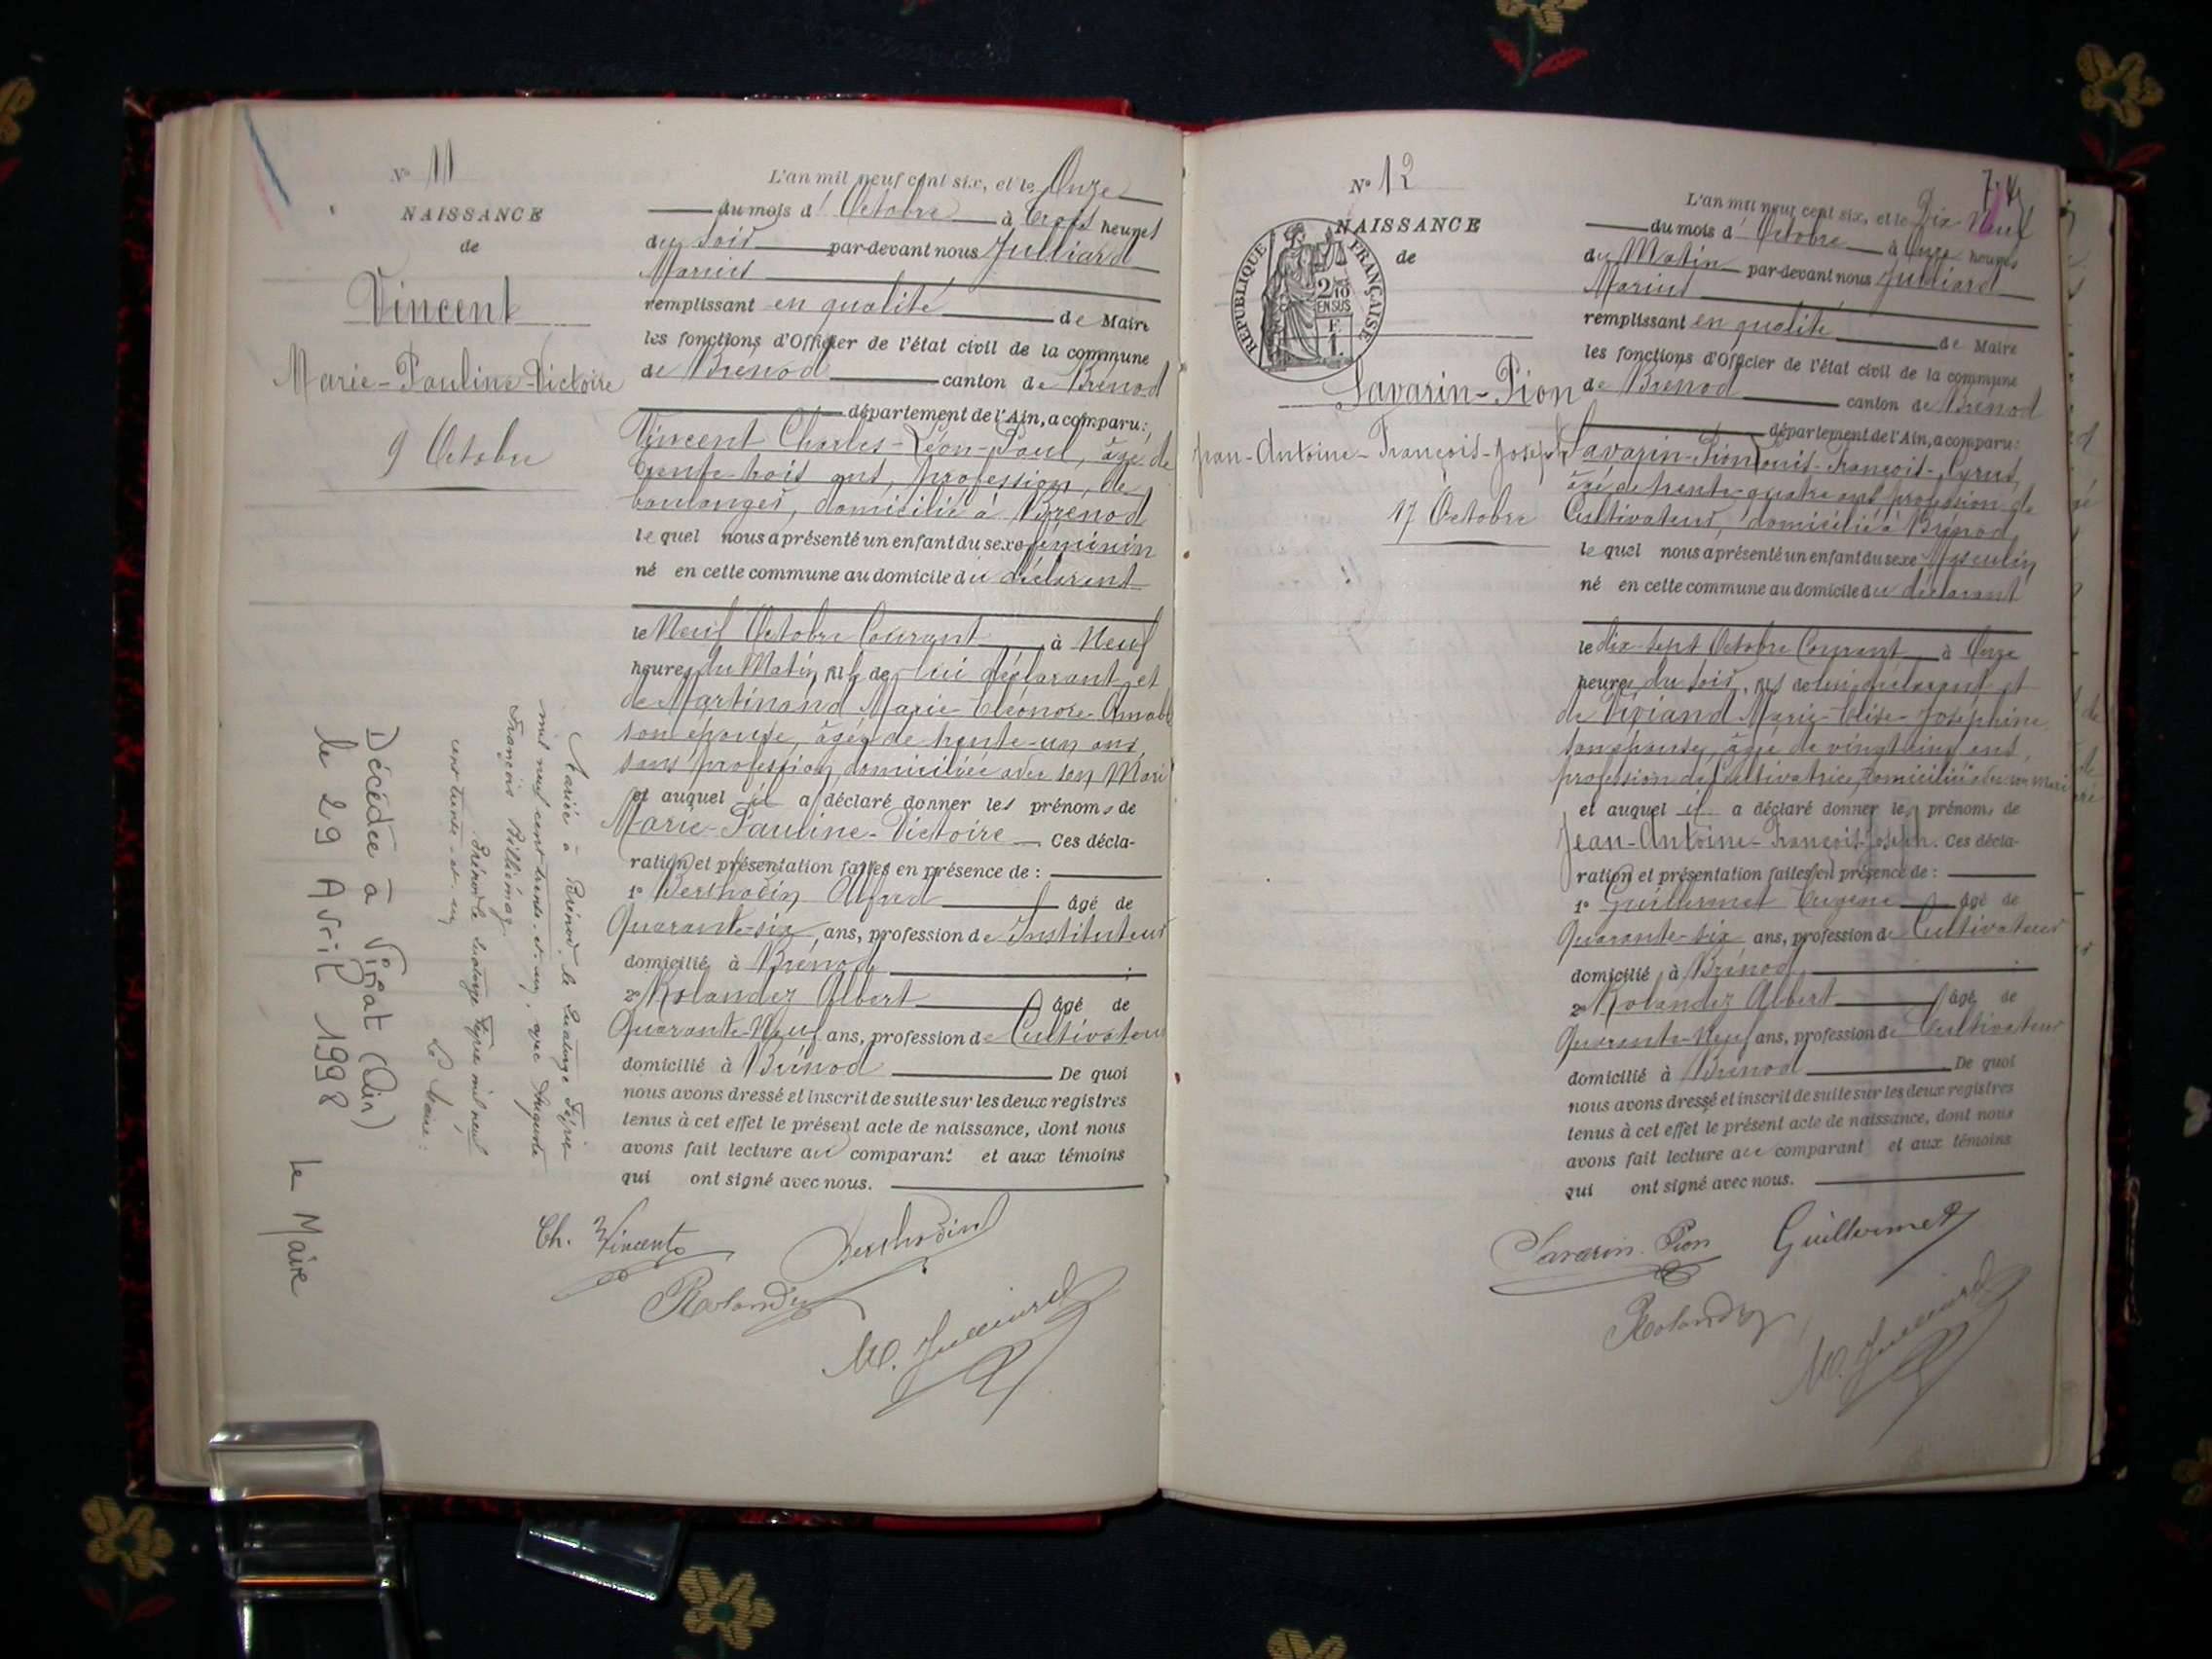 N° 11
NAISSANCE
de
Vincent
Marie-Pauline-Victoire
9 Octobre
L'an mil neuf cent six, et le Onze
du mois d' Octobre à trois heures
du soir par-devant nous Julliard
Marius
remplissant en qualité de Maire
les fonctions d'Officier de l'état civil de la commune
de Brénod canton de Brénod
département de l'Ain, a comparu:
Vincent Charles-Léon-Paul, âgé de
trente-trois ans, profession de
boulanger, domicilié à Brénod
lequel nous a présenté un enfant du sexe féminin
né en cette commune au domicile du déclarant
le Neuf Octobre Courant à Neuf
heures du Matin, né de lui déclarant et
de Martinand Marie-Eléonore-
son épouse, âgée de trente-un ans,
sans profession domiciliée avec son Mari
et auquel il a déclaré donner les prénoms de
Marie-Pauline-Victoire Ces décla-
ration et présentation faites en présence de :
1° Alfred âgé de
Quarante-six ans, profession de Instituteur
domicilié à Brénod
2° Rolandez Albert âgé de
Quarante-Neuf ans, profession de Cultivateur
domicilié à Brénod De quoi
nous avons dressé et inscrit de suite sur les deux registres
tenus à cet effet le présent acte de naissance, dont nous
avons fait lecture au comparant et aux témoins
qui ont signé avec nous.
Ch. Vincent
Rolandez
M. Julliard
Mariée à Brénod, le quatorze Février
mil neuf cent trente-et-un, avec Auguste
François Billiémaz
Brénod le quatorze Février mil neuf
cent trente-et-un
Le Maire :
Décédée à Viriat (Ain)
le 29 Avril 1998 Le Maire
N° 12
NAISSANCE
de
RÉPUBLIQUE FRANÇAISE
2/10
EN SUS
Savarin-Pion
Jean-Antoine-François-Joseph
17 Octobre
L'an mil neuf cent six, et le Dix-Neuf
du mois d' Octobre à Onze heures
du Matin par-devant nous Julliard
Marius
remplissant en qualité de Maire
les fonctions d'Officier de l'état civil de la commune
de Brénod canton de Brénod
département de l'Ain, a comparu:
Savarin-Pion Louis-François-Cyrus,
âgé de trente-quatre ans profession de
Cultivateur, domicilié à Brénod
lequel nous a présenté un enfant du sexe Masculin
né en cette commune au domicile du déclarant
le dix-sept Octobre Courant à Onze
heures du soir, né de lui déclarant et
de Viviand Marie-Elise-Joséphine
son épouse, âgée de ans,
profession de cultivatrice, domiciliée avec son mari
et auquel il a déclaré donner les prénoms de
Jean-Antoine-François-Joseph. Ces décla-
ration et présentation faites en présence de :
1° Guillermet Eugène âgé de
Quarante-six ans, profession de Cultivateur
domicilié à Brénod
2° Rolandez Albert âgé de
Quarante-Neuf ans, profession de Cultivateur
domicilié à Brénod De quoi
nous avons dressé et inscrit de suite sur les deux registres
tenus à cet effet le présent acte de naissance, dont nous
avons fait lecture au comparant et aux témoins
qui ont signé avec nous.
Savarin-Pion Guillermet
Rolandez
M. Julliard